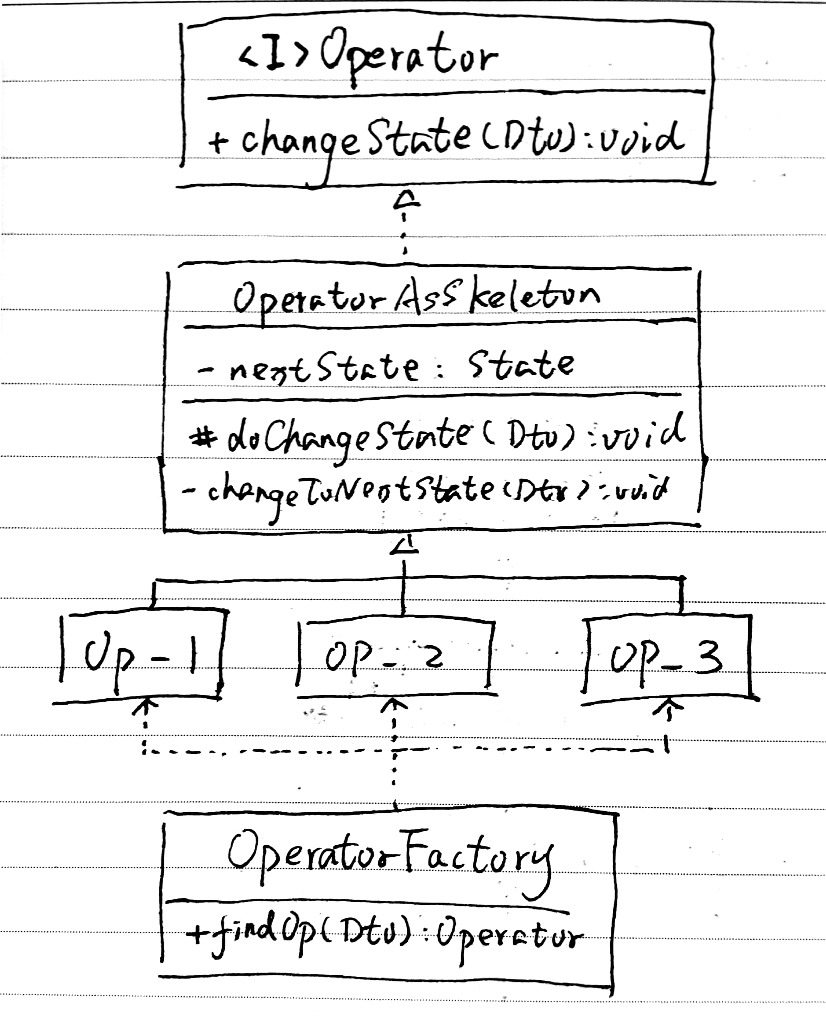 <I> Operator
+ changeState(Dto): void
OperatorAsSkeleton
- nextState: State
# doChangeState(Dto): void
- changeToNextState(Dto): void
Op-1
OP-2
OP-3
OperatorFactory
+findOp(Dto): Operator